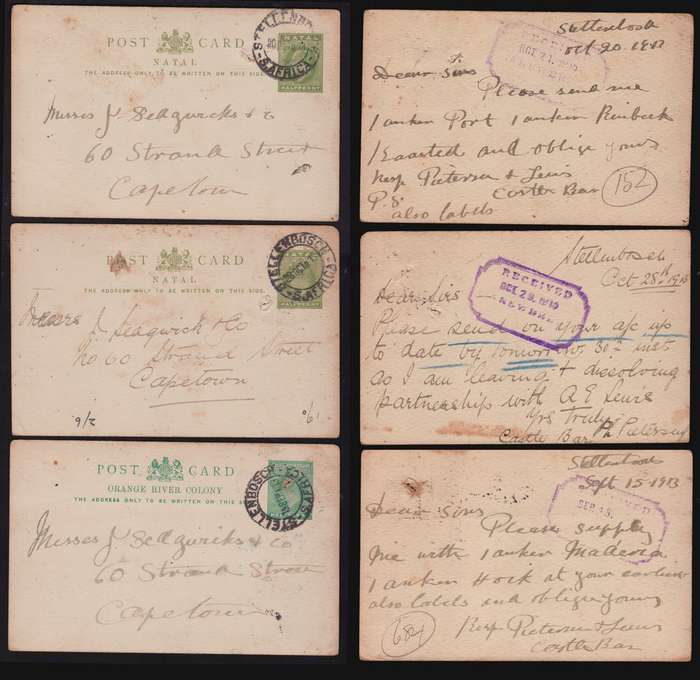 POST CARD
NATAL
THE ADDRESS ONLY TO BE WRITTEN ON THIS SIDE
NATAL
HALFPENNY
STELLENBOSCH
S.AFRICA
Messrs J Sedgwicks & Co
60 Strand Street
Capetown
Stellenbosch
Oct 20
RECEIVED
OCT 21
Dear Sirs
Please send me
1 anker Port 1 anker
and oblige yours
Resp Pietersen & Lewis
Castle Bar
P.S
also labels
182
POST CARD
NATAL
THE ADDRESS ONLY TO BE WRITTEN ON THIS SIDE
STELLENBOSCH
S.AFRICA
Messrs J Sedgwick & Co
No 60 Strand Street
Capetown
Stellenbosch
Oct 28th
RECEIVED
OCT 29
Dear Sirs
Please send on your a/c up
to date by tomorrow 30th inst
as I am leaving & dissolving
partnership with A E Lewis
Yrs Truly
Castle Bar Pietersen
POST CARD
ORANGE RIVER COLONY
THE ADDRESS ONLY TO BE WRITTEN ON THIS SIDE
STELLENBOSCH
S.AFRICA
Messrs J Sedgwicks & Co
60 Strand Street
Capetown
Stellenbosch
Sept 15 1913
Dear Sirs
Please supply
me with 1 anker Madeira
1 anker Hock at your earliest
also labels and oblige yours
Resp Pietersen & Lewis
Castle Bar
684